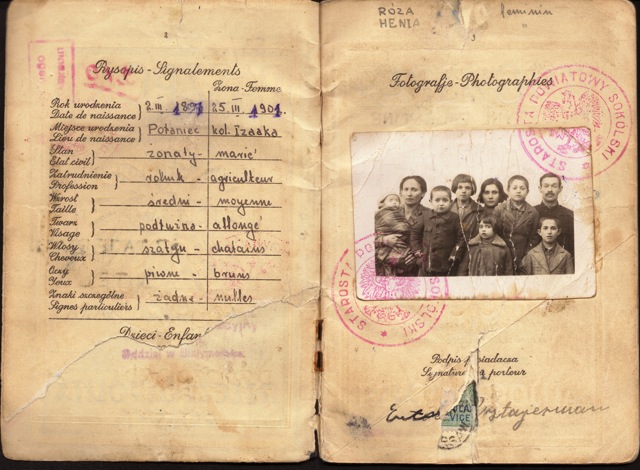 2
Rysopis - Signalements
Żona - Femme
Rok urodzenia
Date de naissance
2.III.1897
25.III.1901.
Miejsce urodzenia
Lieu de naissance
Połaniec
kol. Izaaka
Stan
Etat civil
żonaty - marié
Zatrudnienie
Profession
rolnik - agriculteur
Wzrost
Taille
średni - moyenne
Twarz
Visage
allongé
Włosy
Cheveux
szatyn - chatains
Oczy
Yeux
piwne - bruns
Znaki szczególne
Signes particuliers
żadne - nulles
Dzieci - Enfan
RÓŻA
HENIA
feminin
3
Fotografje - Photographies
STAROSTA POWIATOWY SOKOLSKI
STAROSTA PO
OLSKI
Podpis posiadacza
Signature du porteur